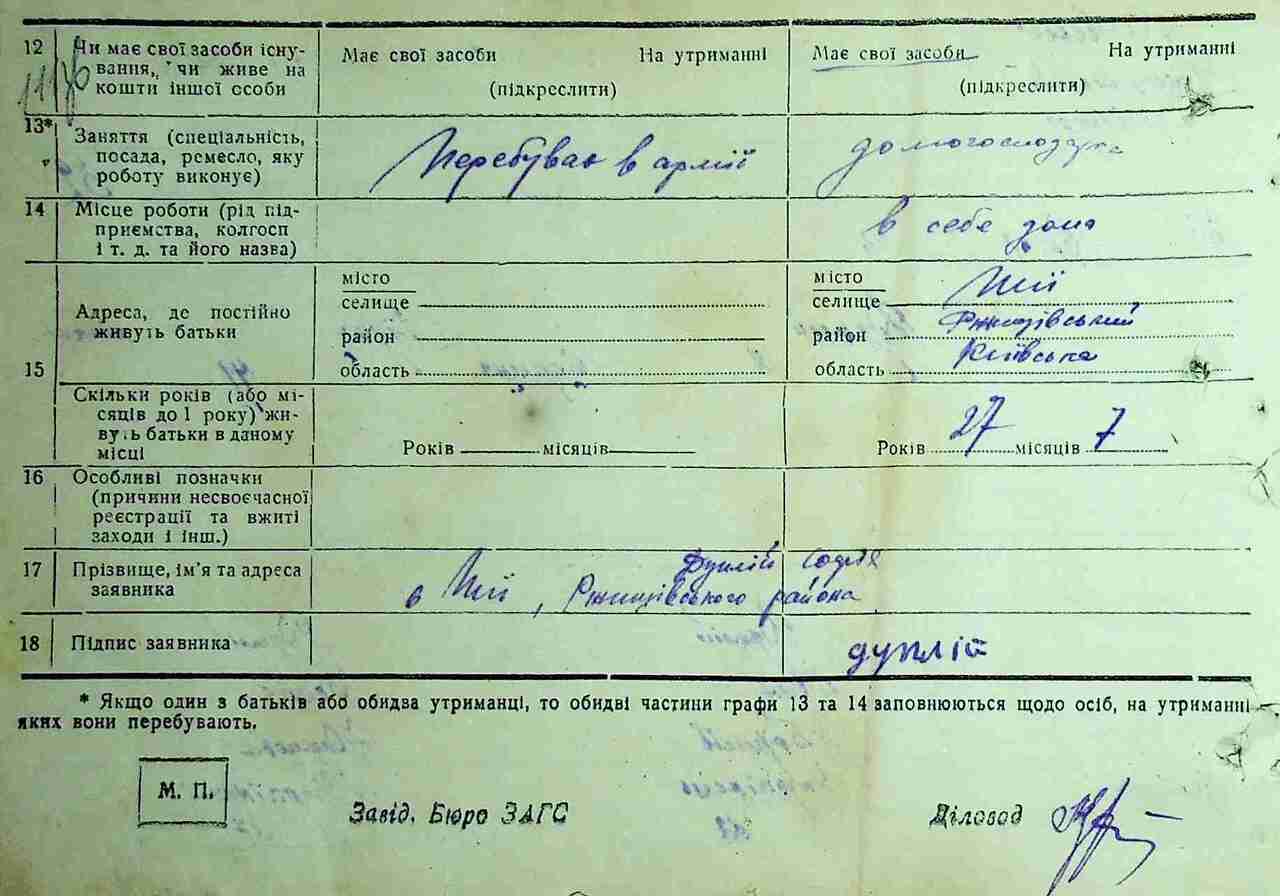 12 Чи має свої засоби існу-
вання, чи живе на
кошти іншої особи
Має свої засоби На утриманні
(підкреслити)
Має свої засоби На утриманні
(підкреслити)
13* Заняття (спеціальність,
посада, ремесло, яку
роботу виконує)
Перебуває в армії
домогосподарка
14 Місце роботи (рід під-
приємства, колгосп
і т. д. та його назва)
в себе дома
15
Адреса, де постійно
живуть батьки
місто
селище
район
область
місто
селище
район Ржищівський
область Київська
Скільки років (або мі-
сяців до 1 року) жи-
вуть батьки в даному
місці
Років місяців
Років 27 місяців 7
16 Особливі позначки
(причини несвоєчасної
реєстрації та вжиті
заходи і інш.)
17 Прізвище, ім'я та адреса
заявника
Дуплій Софія
Ржищівського района
18 Підпис заявника
дуплій
* Якщо один з батьків або обидва утриманці, то обидві частини графи 13 та 14 заповнюються щодо осіб, на утриманні
яких вони перебувають.
М. П.
Завід. Бюро ЗАГС
Діловод